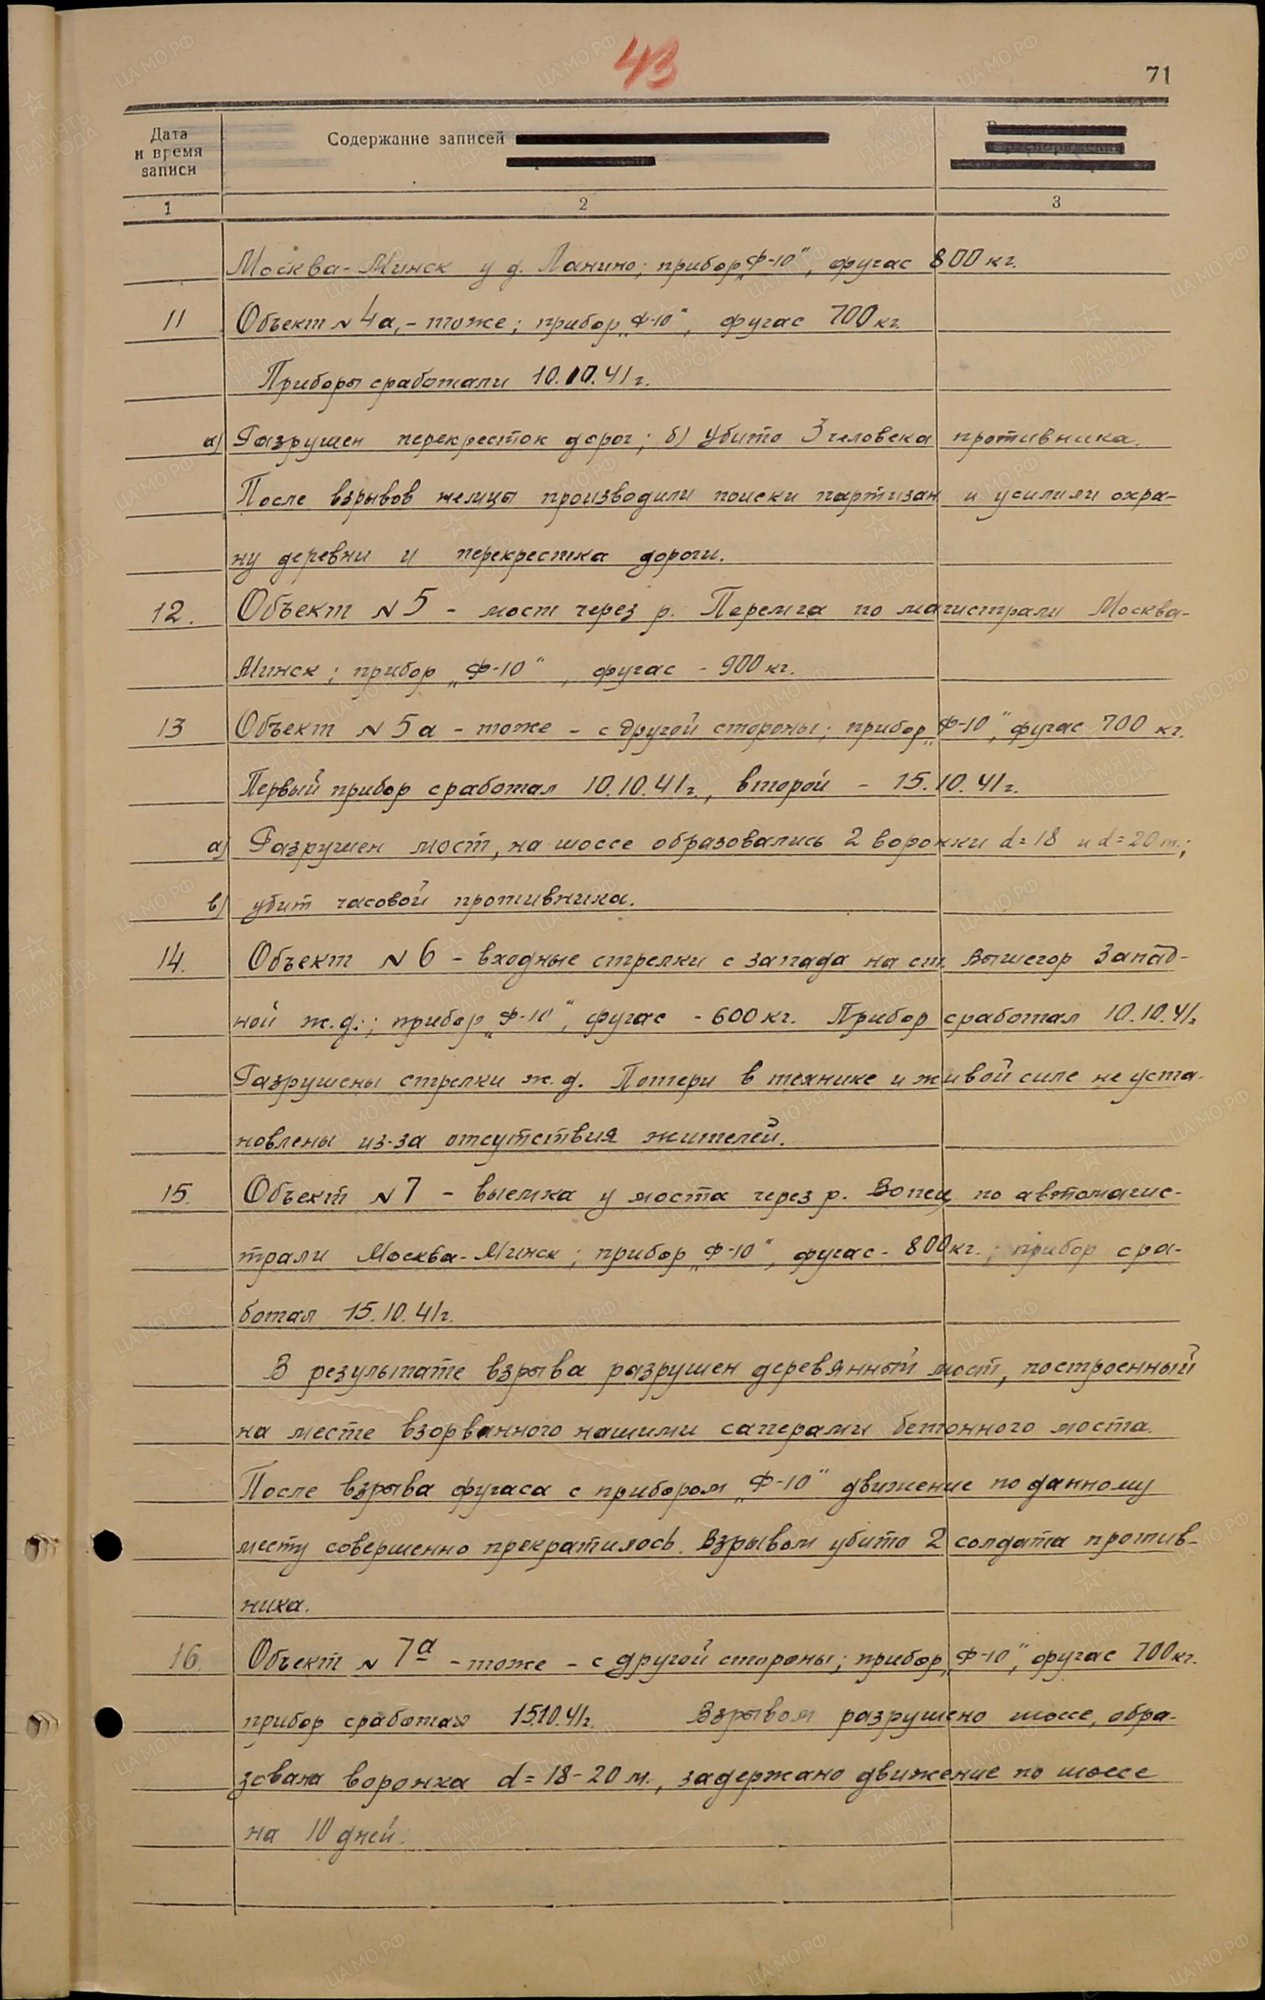 43
71
Дата
и время
записи
Содержание записей
1
2
3
Москва-Минск у д. Панино; прибор „Ф-10", фугас 800 кг.
11 Объект № 4а, - тоже; прибор „Ф-10", фугас 700 кг.
Приборы сработали 10.10.41 г.
а) Разрушен перекресток дорог; б) Убито 3 человека противника.
После взрывов немцы производили поиски партизан и усилили охра-
ну деревни и перекрестка дороги.
12. Объект № 5 - мост через р. Перемга по магистрали Москва-
Минск; прибор „Ф-10", фугас - 900 кг.
13 Объект № 5а - тоже - с другой стороны; прибор „Ф-10", фугас 700 кг.
Первый прибор сработал 10.10.41 г., второй - 15.10.41 г.
а) Разрушен мост, на шоссе образовались 2 воронки d=18 и d=20 m.;
в) убит часовой противника.
14. Объект № 6 - входные стрелки с запада на ст. Вышегор Запад-
ной ж.д.; прибор „Ф-10", фугас - 600 кг. Прибор сработал 10.10.41г.
Разрушены стрелки ж.д. Потери в технике и живой силе не уста-
новлены из-за отсутствия жителей.
15. Объект № 7 - выемка у моста через р. Вопец по автомагис-
трали Москва-Минск; прибор „Ф-10", фугас - 800 кг.; прибор сра-
ботал 15.10.41 г.
В результате взрыва разрушен деревянный мост, построенный
на месте взорванного нашими саперами бетонного моста.
После взрыва фугаса с прибором „Ф-10" движение по данному
месту совершенно прекратилось. Взрывом убито 2 солдата против-
ника.
16. Объект № 7а - тоже - с другой стороны; прибор „Ф-10", фугас 700 кг.
прибор сработал 15.10.41 г. Взрывом разрушено шоссе, обра-
зована воронка d=18-20 м., задержано движение по шоссе
на 10 дней.